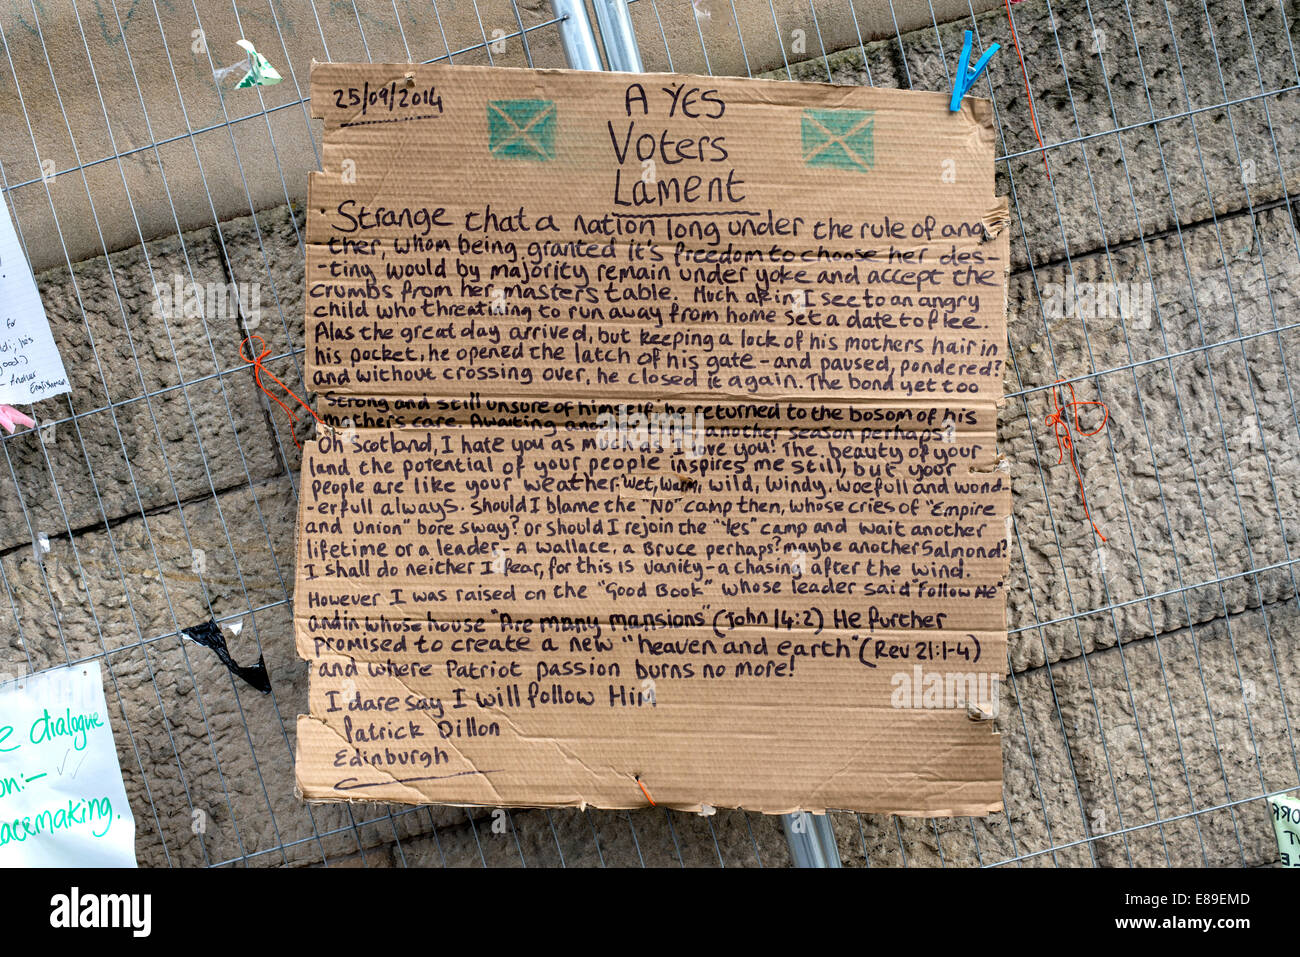 25/09/2014
A YES
Voters
Lament
Strange that a nation long under the rule of ano
ther, whom being granted it's freedom to choose her des-
-tiny would by majority remain under yoke and accept the
crumbs from her masters table. Much akin I see to an angry
child who threatining to run away from home set a date to flee.
Alas the great day arrived, but keeping a lock of his mothers hair in
his pocket, he opened the latch of his gate - and paused, pondered?
and without crossing over, he closed it again. The bond yet too
Strong and still unsure of himself, he returned to the bosom of his
mothers care. Awaiting another another season perhaps?
Oh Scotland, I hate you as much as I love you! The beauty of your
land the potential of your people inspires me still, but your
people are like your weather. Wet, Warm, wild, windy, woefull and wond-
-erfull always. Should I blame the "No" camp then, whose cries of "Empire
and Union" bore sway? or should I rejoin the "Yes" camp and wait another
lifetime or a leader - A Wallace, a Bruce perhaps? maybe another Salmond?
I shall do neither I fear, for this is vanity - a chasing after the wind.
However I was raised on the "Good Book" whose leader said "Follow Me"
and in whose house "Are many mansions" (John 14:2) He further
promised to create a new "heaven and earth" (Rev 21:1-4)
and where Patriot passion burns no more!
I dare say I will follow Him
Patrick Dillon
Edinburgh
for
good.)
Another
Englishman
e dialogue
on:-
acemaking.
alamy
alamy
Image ID: E89EMD
www.alamy.com